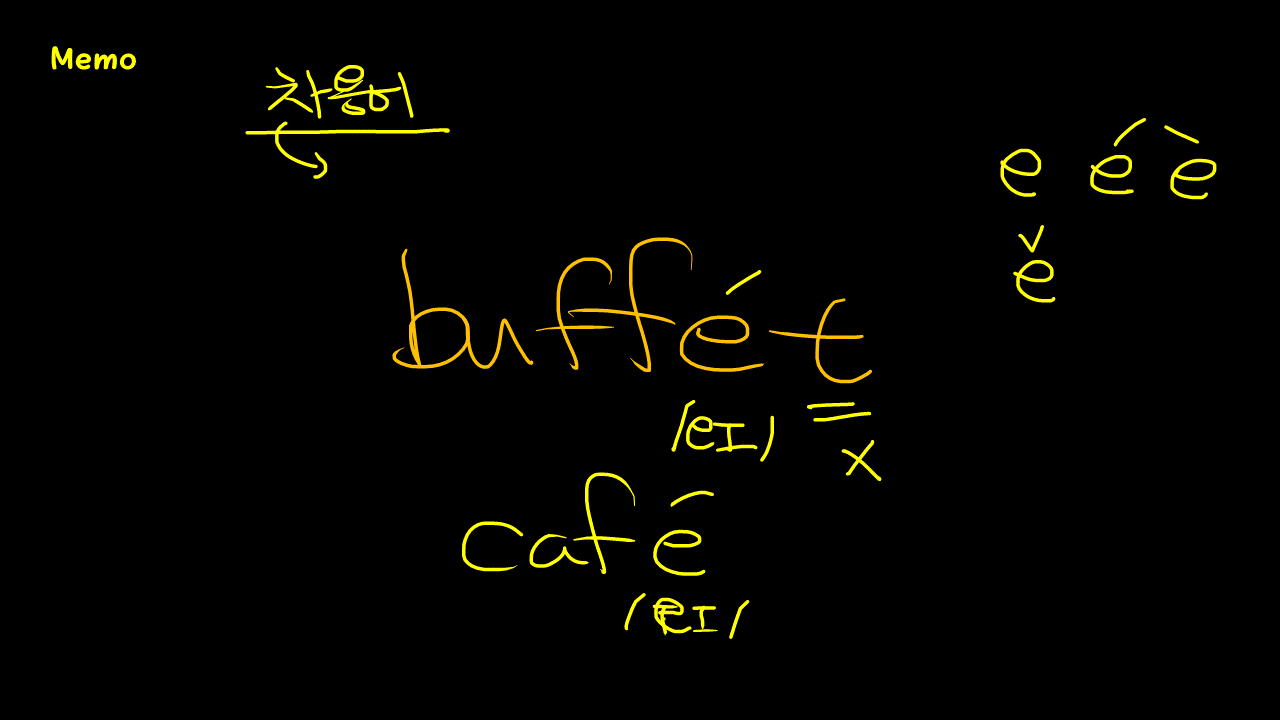 Memo
차용어
e é è
ě
buffét
/eɪ/ x
café
/eɪ/